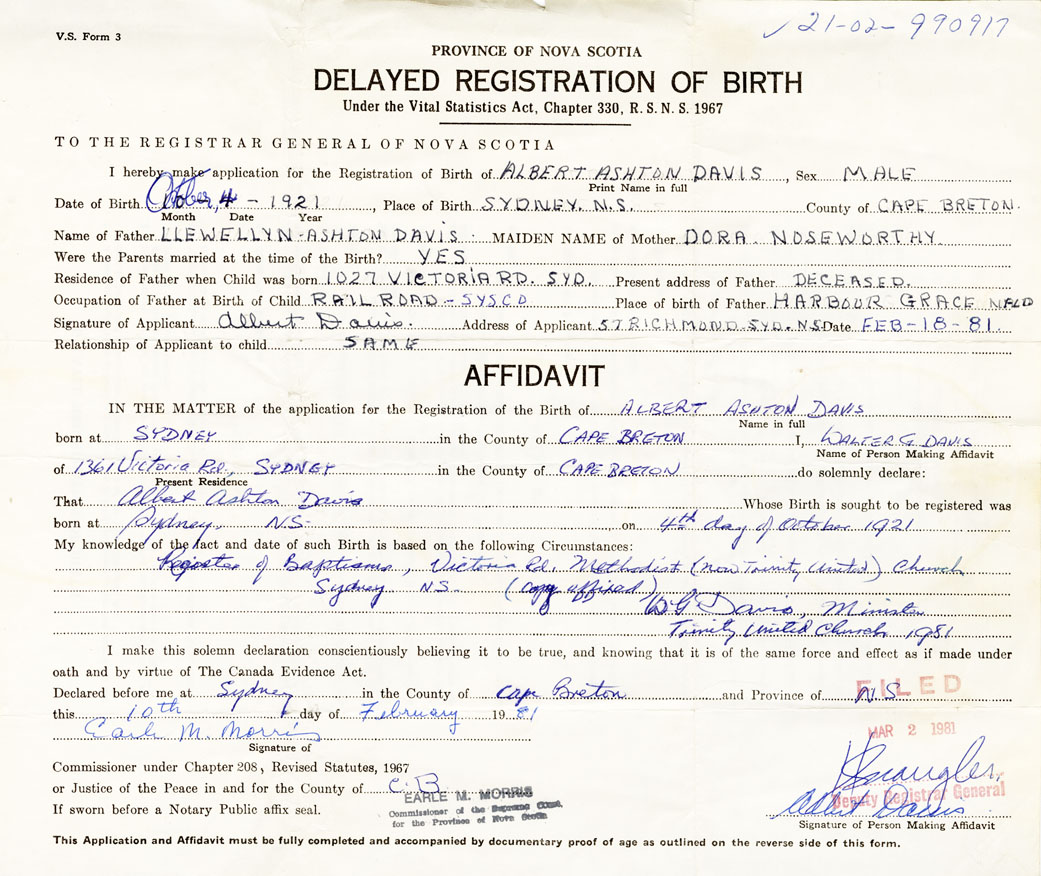 V.S. Form 3
21-02-990917
PROVINCE OF NOVA SCOTIA
DELAYED REGISTRATION OF BIRTH
Under the Vital Statistics Act, Chapter 330, R. S. N. S. 1967
TO THE REGISTRAR GENERAL OF NOVA SCOTIA
I hereby make application for the Registration of Birth of ALBERT ASHTON DAVIS, Sex MALE
Print Name in full
Date of Birth October, 4 - 1921, Place of Birth SYDNEY. N.S. County of CAPE BRETON.
Month Date Year
Name of Father LLEWELLYN-ASHTON DAVIS MAIDEN NAME of Mother DORA NOSEWORTHY
Were the Parents married at the time of the Birth? YES
Residence of Father when Child was born 1027 VICTORIA RD. SYD. Present address of Father DECEASED.
Occupation of Father at Birth of Child RAILROAD - SYSCO Place of birth of Father HARBOUR GRACE NFLD
Signature of Applicant Albert Davis. Address of Applicant 5 T RICHMOND SYD. NS Date FEB-18-81.
Relationship of Applicant to child SAME
AFFIDAVIT
IN THE MATTER of the application for the Registration of the Birth of ALBERT ASHTON DAVIS
Name in full
born at SYDNEY in the County of CAPE BRETON I, WALTER G DAVIS
Name of Person Making Affidavit
of 1361 Victoria Rd., SYDNEY in the County of CAPE BRETON do solemnly declare:
Present Residence
That Albert Ashton Davis Whose Birth is sought to be registered was
born at Sydney, NS- on 4th day of October 1921.
My knowledge of the fact and date of such Birth is based on the following Circumstances:
Register of Baptisms, Victoria Rd. Methodist (now Trinity United) Church
Sydney N.S. (copy affixed)
W G Davis, Minister
Trinity United Church 1981
I make this solemn declaration conscientiously believing it to be true, and knowing that it is of the same force and effect as if made under
oath and by virtue of The Canada Evidence Act.
Declared before me at Sydney in the County of Cape Breton and Province of N.S
FILED
this 10th day of February 1981
MAR 2 1981
Earle M. Morris
Signature of
Commissioner under Chapter 208, Revised Statutes, 1967
or Justice of the Peace in and for the County of C.B.
EARLE M. MORRIS
Commissioner of the Supreme Court,
for the Province of Nova Scotia
Deputy Registrar General
If sworn before a Notary Public affix seal.
Albert Davis
Signature of Person Making Affidavit
This Application and Affidavit must be fully completed and accompanied by documentary proof of age as outlined on the reverse side of this form.